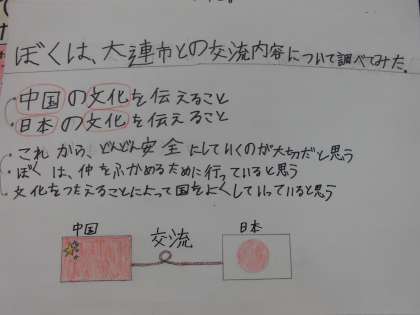 ぼくは、大連市との交流内容について調べてみた。
・中国の文化を伝えること
・日本の文化を伝えること
・これから、どんどん安全にしていくのが大切だと思う
・ぼくは、仲をふかめるために行っていると思う
・文化をつたえることによって国をよくしていっていると思う
中国 交流 日本